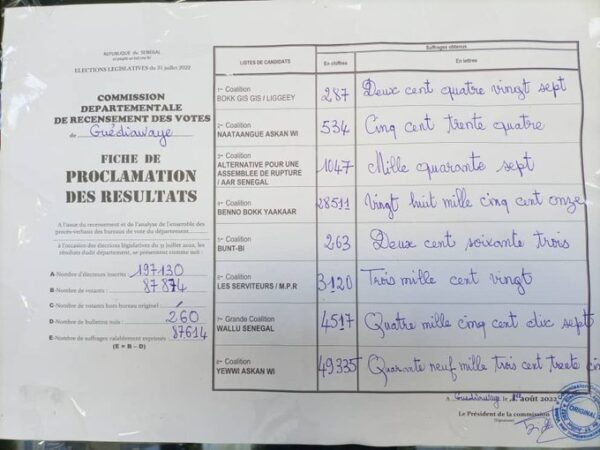 REPUBLIQUE DU SENEGAL
ELECTIONS LEGISLATIVES du 31 juillet 2022
COMMISSION
DEPARTEMENTALE
DE RECENSEMENT DES VOTES
de Guédiawaye
FICHE DE
PROCLAMATION
DES RESULTATS
A l'issue du recensement et de l'analyse de l'ensemble des
procès-verbaux des bureaux de vote du département
à l'occasion des élections législatives du 31 juillet 2022, les
résultats dudit département, se présentent comme suit :
A-Nombre d'électeurs inscrits : 197130
B-Nombre de votants : 87874
C-Nombre de votants hors bureau originel :
D-Nombre de bulletins nuls : 260
E-Nombre de suffrages valablement exprimés : 87614
(E = B – D)
LISTES DE CANDIDATS
Suffrages obtenus
En chiffres
En lettres
1re Coalition
BOKK GIS GIS / LIGGEEY
287
Deux cent quatre vingt sept
2e Coalition
NAATAANGUE ASKAN WI
534
Cinq cent trente quatre
3e Coalition
ALTERNATIVE POUR UNE
ASSEMBLEE DE RUPTURE
/ AAR SENEGAL
1047
Mille quarante sept
4e Coalition
BENNO BOKK YAAKAAR
28511
Vingt huit mille cinq cent onze
5e Coalition
BUNT-BI
263
Deux cent soixante trois
6e Coalition
LES SERVITEURS / M.P.R
3120
Trois mille cent vingt
7e Grande Coalition
WALLU SENEGAL
4517
Quatre mille cinq cent dix sept
8e Coalition
YEWWI ASKAN WI
49335
Quarante neuf mille trois cent trente
A Guédiawaye le août 2022
Le Président de la commission
(Signature)
ORIGINAL